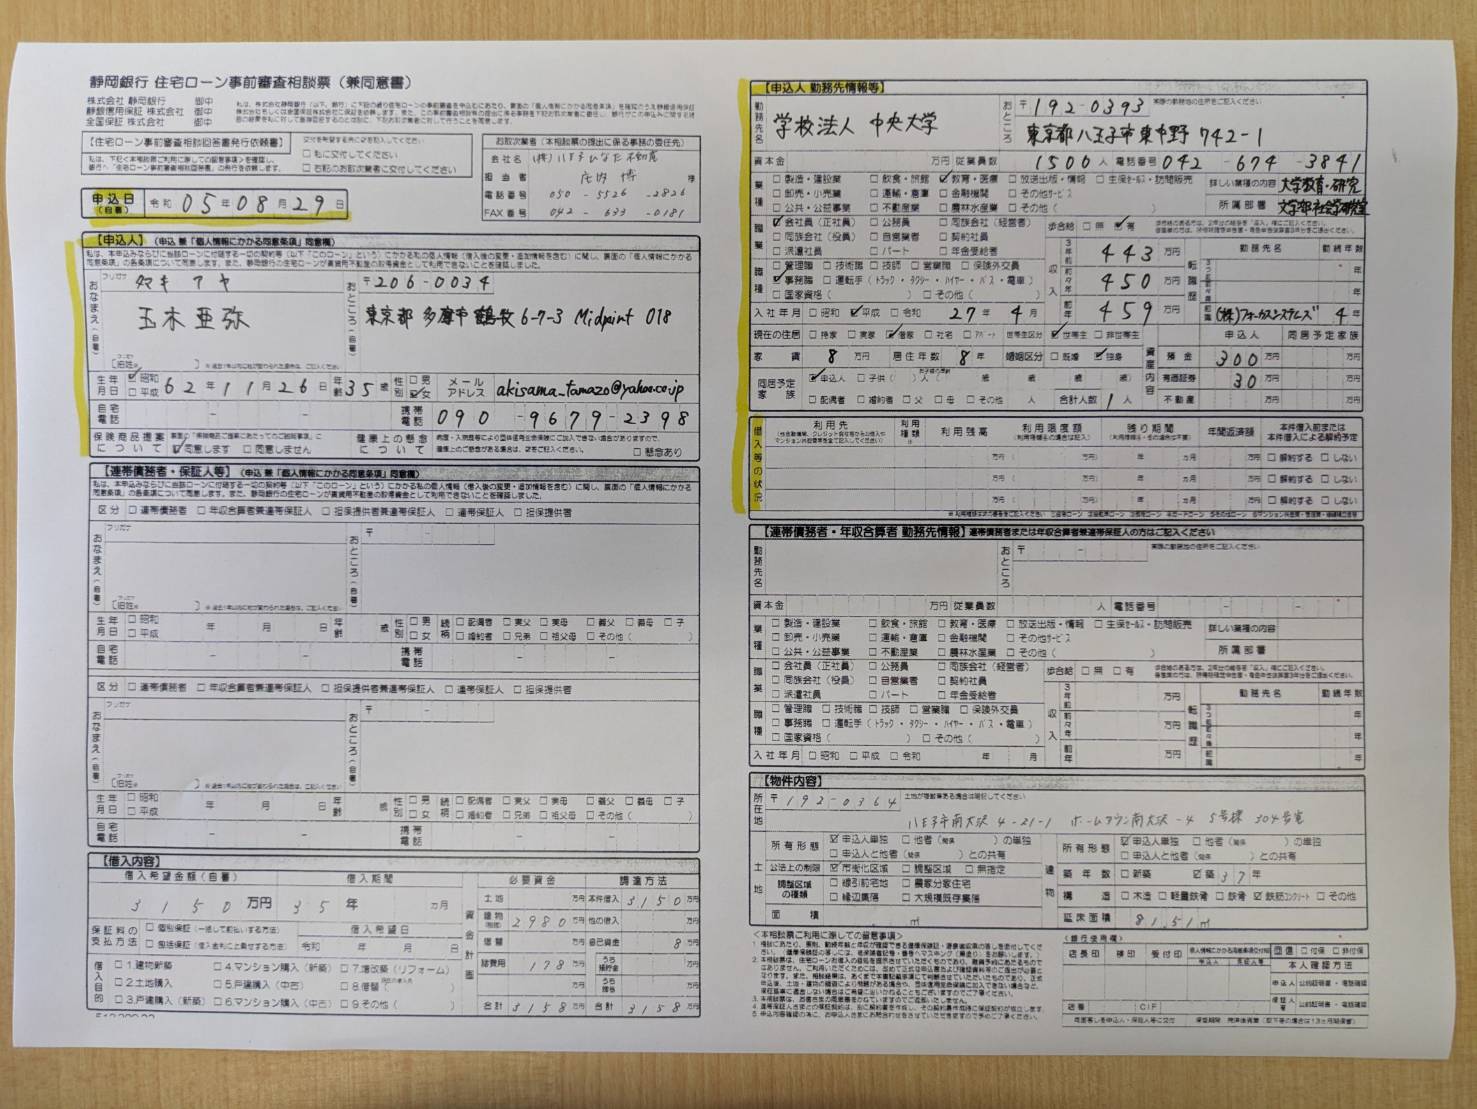 静岡銀行 住宅ローン事前審査相談票（兼同意書）
株式会社 静岡銀行 御中
静銀信用保証 株式会社 御中
全国保証 株式会社 御中
【住宅ローン事前審査相談回答書発行依頼書】
□ 私に交付してください
□ 右記のお取次業者に交付してください
お取次業者（本相談票の提出に係る事務の委任先）
会社名 (株)八王子ひなた不動産
担当者 庄内 博 様
電話番号 050-5526-2826
FAX番号 042-633-0181
申込日（自署） 令和 05年08月29日
【申込人】（申込 兼「個人情報にかかる同意条項」同意欄）
フリガナ タマキ アヤ
おなまえ（自署） 玉木 亜弥
〔旧姓 〕
おところ（自署） 〒206-0034
東京都 多摩市 鶴牧 6-7-3 Midpoint 018
生年月日 ☑昭和 □平成 62年11月26日 年齢 35歳 性別 □男 ☑女 メールアドレス akisama_tamazo@yahoo.co.jp
自宅電話 - - 携帯電話 090-9679-2398
保険商品提案について ☑同意します □同意しません 健康上の懸念について □懸念あり
【連帯債務者・保証人等】（申込 兼「個人情報にかかる同意条項」同意欄）
区分 □連帯債務者 □年収合算者兼連帯保証人 □担保提供者兼連帯保証人 □連帯保証人 □担保提供者
フリガナ
おなまえ（自署）
おところ（自署） 〒 -
生年月日 □昭和 □平成 年 月 日 年齢 歳 性別 □男 □女 続柄 □配偶者 □実父 □実母 □義父 □義母 □子 □婚約者 □兄弟 □祖父母 □その他（ ）
自宅電話 - - 携帯電話 - -
区分 □連帯債務者 □年収合算者兼連帯保証人 □担保提供者兼連帯保証人 □連帯保証人 □担保提供者
フリガナ
おなまえ（自署）
おところ（自署） 〒 -
生年月日 □昭和 □平成 年 月 日 年齢 歳 性別 □男 □女 続柄 □配偶者 □実父 □実母 □義父 □義母 □子 □婚約者 □兄弟 □祖父母 □その他（ ）
自宅電話 - - 携帯電話 - -
【借入内容】
借入希望金額（自署） 借入期間
3150万円 35年 ヵ月
保証料の支払方法 □個別保証（一括して前払いする方法）
□包括保証（借入金利に上乗せする方法）
借入希望日 令和 年 月 日
借入目的 □1.建物新築 □4.マンション購入（新築） □7.増改築（リフォーム）
□2.土地購入 □5.戸建購入（中古） □8.借替（ ）
□3.戸建購入（新築） □6.マンション購入（中古） □9.その他（ ）
資金計画 必要資金 調達方法
土地 万円 本件借入 3150万円
建物 2980万円 他の借入 万円
借替 万円 自己資金 8万円
諸費用 178万円
合計 3158万円 合計 3158万円
【申込人 勤務先情報等】
勤務先名 学校法人 中央大学
おところ 〒192-0393 実際の勤務地の住所をご記入ください
東京都八王子市東中野 742-1
資本金 万円 従業員数 1500人 電話番号 042-674-3841
業種 □製造・建設業 □飲食・旅館 ☑教育・医療 □放送出版・情報 □生保セールス・訪問販売
□卸売・小売業 □運輸・倉庫 □金融機関 □その他サービス
□公共・公益事業 □不動産業 □農林水産業 □その他（ ）
詳しい業種の内容 大学教育・研究
所属部署 文学部社会学研究室
職業 ☑会社員（正社員） □公務員 □同族会社（経営者）
□同族会社（役員） □自営業者 □契約社員
□派遣社員 □パート □年金受給者
歩合給 □無 ☑有
職種 □管理職 □技術職 □技師 □営業職 □保険外交員
☑事務職 □運転手（トラック・タクシー・ハイヤー・バス・電車）
□国家資格（ ） □その他（ ）
収入 3年前 443万円
前々年 450万円
前年 459万円
転職歴 勤務先名 勤続年数
前職 (株)フォーカスシステムズ 4年
入社年月 □昭和 ☑平成 □令和 27年4月
現在の住居 □持家 □実家 ☑借家 □社宅 □アパート 世帯主区分 ☑世帯主 □非世帯主
家賃 8万円 居住年数 8年 婚姻区分 □既婚 ☑独身
同居予定家族 ☑申込人 □子供（ ）人（ 歳 歳 歳 歳）
□配偶者 □婚約者 □父 □母 □その他 人 合計人数 1人
資産内容 申込人 同居予定家族
預金 300万円 万円
有価証券 30万円 万円
不動産 万円 万円
借入等の状況
利用先 利用種類 利用残高 利用限度額 残り期間 年間返済額 本件借入前または本件借入による解約予定
万円（ ） 万円 年 ヵ月 万円 □解約する □しない
万円（ ） 万円 年 ヵ月 万円 □解約する □しない
万円（ ） 万円 年 ヵ月 万円 □解約する □しない
【連帯債務者・年収合算者 勤務先情報】連帯債務者または年収合算者兼連帯保証人の方はご記入ください
勤務先名
おところ 〒 - 実際の勤務地の住所をご記入ください
資本金 万円 従業員数 人 電話番号 - -
業種 □製造・建設業 □飲食・旅館 □教育・医療 □放送出版・情報 □生保セールス・訪問販売
□卸売・小売業 □運輸・倉庫 □金融機関 □その他サービス
□公共・公益事業 □不動産業 □農林水産業 □その他（ ）
詳しい業種の内容
所属部署
職業 □会社員（正社員） □公務員 □同族会社（経営者）
□同族会社（役員） □自営業者 □契約社員
□派遣社員 □パート □年金受給者
歩合給 □無 □有
職種 □管理職 □技術職 □技師 □営業職 □保険外交員
□事務職 □運転手（トラック・タクシー・ハイヤー・バス・電車）
□国家資格（ ） □その他（ ）
収入 3年前 万円
前々年 万円
前年 万円
転職歴 勤務先名 勤続年数
入社年月 □昭和 □平成 □令和 年 月
【物件内容】
所在地 〒192-0364
八王子市南大沢 4-21-1 ホームタウン南大沢-4 5号棟 304号室
土地 所有形態 ☑申込人単独 □他者（関係 ）の単独
□申込人と他者（関係 ）との共有
公法上の制限 ☑市街化区域 □調整区域 □無指定
調整区域の種類 □線引前宅地 □農家分家住宅
□縁辺集落 □大規模既存集落
面積 ㎡
建物 所有形態 ☑申込人単独 □他者（関係 ）の単独
□申込人と他者（関係 ）との共有
築年数 □新築 ☑築37年
構造 □木造 □軽量鉄骨 □鉄骨 ☑鉄筋コンクリート □その他
延床面積 81.51㎡
＜本相談票ご利用に際しての留意事項＞
（銀行使用欄）
店長印 検印 受付印
団信 □付保 □非付保
本人確認方法
申込人 公的証明書・電話確認
保証人等 公的証明書・電話確認
店番 CIF